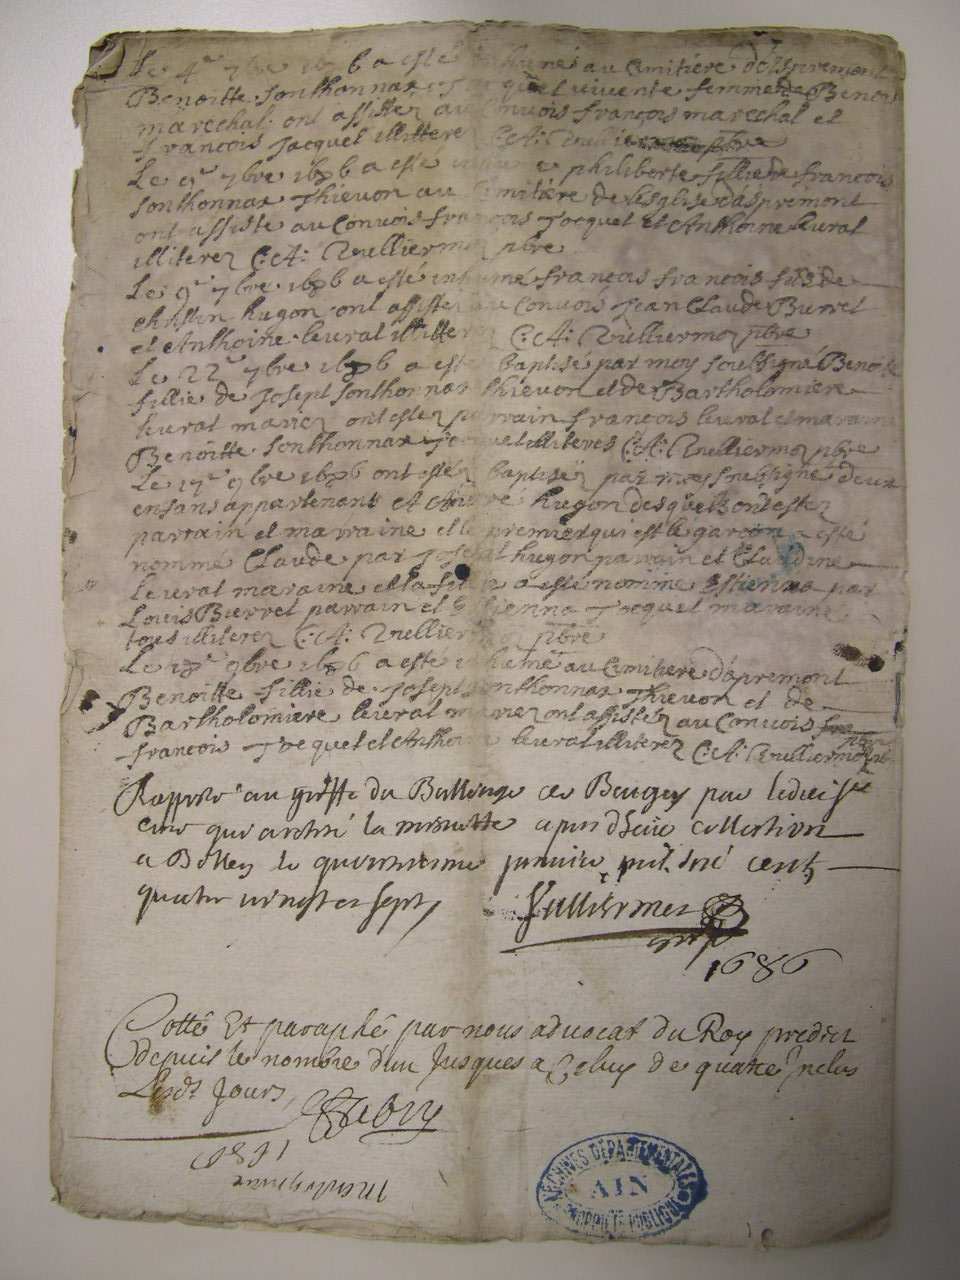 Le 4e 7bre 1686 a esté inhumé au Cimitiere d'Aspremont
Benoitte Sonthonnax Jacquet vivente femme de Benois
marechal ont assistez au Convois françois marechal et
françois Jacquet illitterez C: A: Vulliermoz pbre
Le 9e 7bre 1686 a esté inhumé philiberte fillie de françois
Sonthonnax Thievon au Cimitiere de l'esglise d'aspremont
ont assisté au Convois françois Jocquet et Anthoine leurat
illiterez C: A: Vulliermoz pbre
Le 9e 7bre 1686 a esté inhumé françois françois fils de
Christin hugon ont assistez au Convois Jean Claude Burret
et Anthoine leurat illitterez C: A: Vulliermoz pbre
Le 22e 7bre 1686 a esté baptisé par moy soubsigné Benoite
fillie de Joseph Sonthonnax Thievon et de Bartholomiere
leurat mariez ont estez parrain françois leurat et maraine
Benoitte Sonthonnax Jocquet illiteres C: A: Vulliermoz pbre
Le 17e 9bre 1686 ont estéz baptiséz par moy soubsigné deux
enfans appartenant A André hugon desquels ont estez
parrain et marraine et le premier qui est le garcon a esté
nommé Claude par Joseph hugon parrain et Claudine
leurat maraine et la fillie a esté nommé Estienna par
Louis Burret parrain et Estienna Jocquet maraine
tous illiterez C: A: Vulliermoz pbre
Le 9bre 1686 a esté inhumé au Cimitiere d'apremont
Benoitte fillie de Joseph Sonthonnax Thievon et de
Bartholomiere leurat mariez ont assistez au Convois
françois Jocquet et Anthoine leurat illiterez C: A: Vulliermoz pbre
Rapporté au greffe du Balliage de Beugey par ledict Sr
Curé qui a retiré la minutte apres dheue collation
a Belley le quinziesme janvier mil six cent
quatre vingt et sept
Vulliermoz
1686
Cotté Et paraphé par nous advocat du Roy
depuis le nombre d'un Jusques a Celuy de quatre Inclus
Lesdts Jours
1687
ARCHIVES DÉPARTEMENTALES
AIN
PROPRIÉTÉ PUBLIQUE